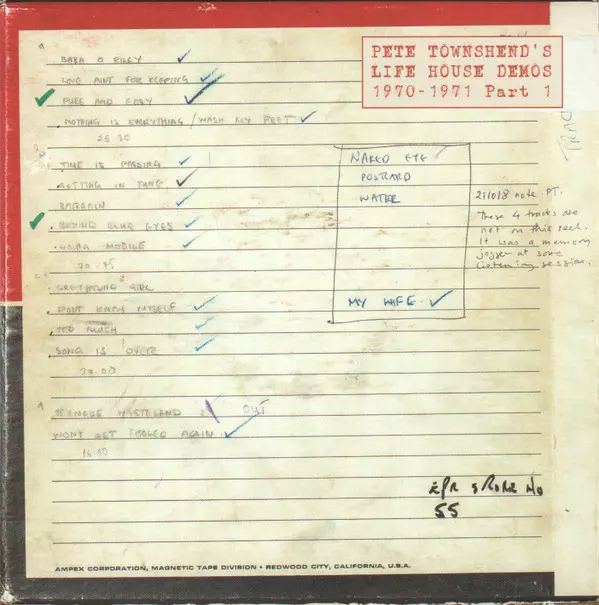 PETE TOWNSHEND'S
LIFE HOUSE DEMOS
1970-1971 Part 1
BABA O RILEY
LOVE AINT FOR KEEPING
PURE AND EASY
NOTHING IS EVERYTHING / WASH MY FEET
TIME IS PASSING
GETTING IN TUNE
BARGAIN
BEHIND BLUE EYES
GOING MOBILE
GREYHOUND GIRL
DONT KNOW MYSELF
TOO MUCH
SONG IS OVER
TEENAGE WASTELAND OUT
WONT GET FOOLED AGAIN
NAKED EYE
POSTCARD
WATER
MY WIFE
21018 note PT.
These 4 tracks are
not on this reel.
It was a memory
jogger at some
listening session.
EPR STORE NO
55
AMPEX CORPORATION, MAGNETIC TAPE DIVISION • REDWOOD CITY, CALIFORNIA, U.S.A.